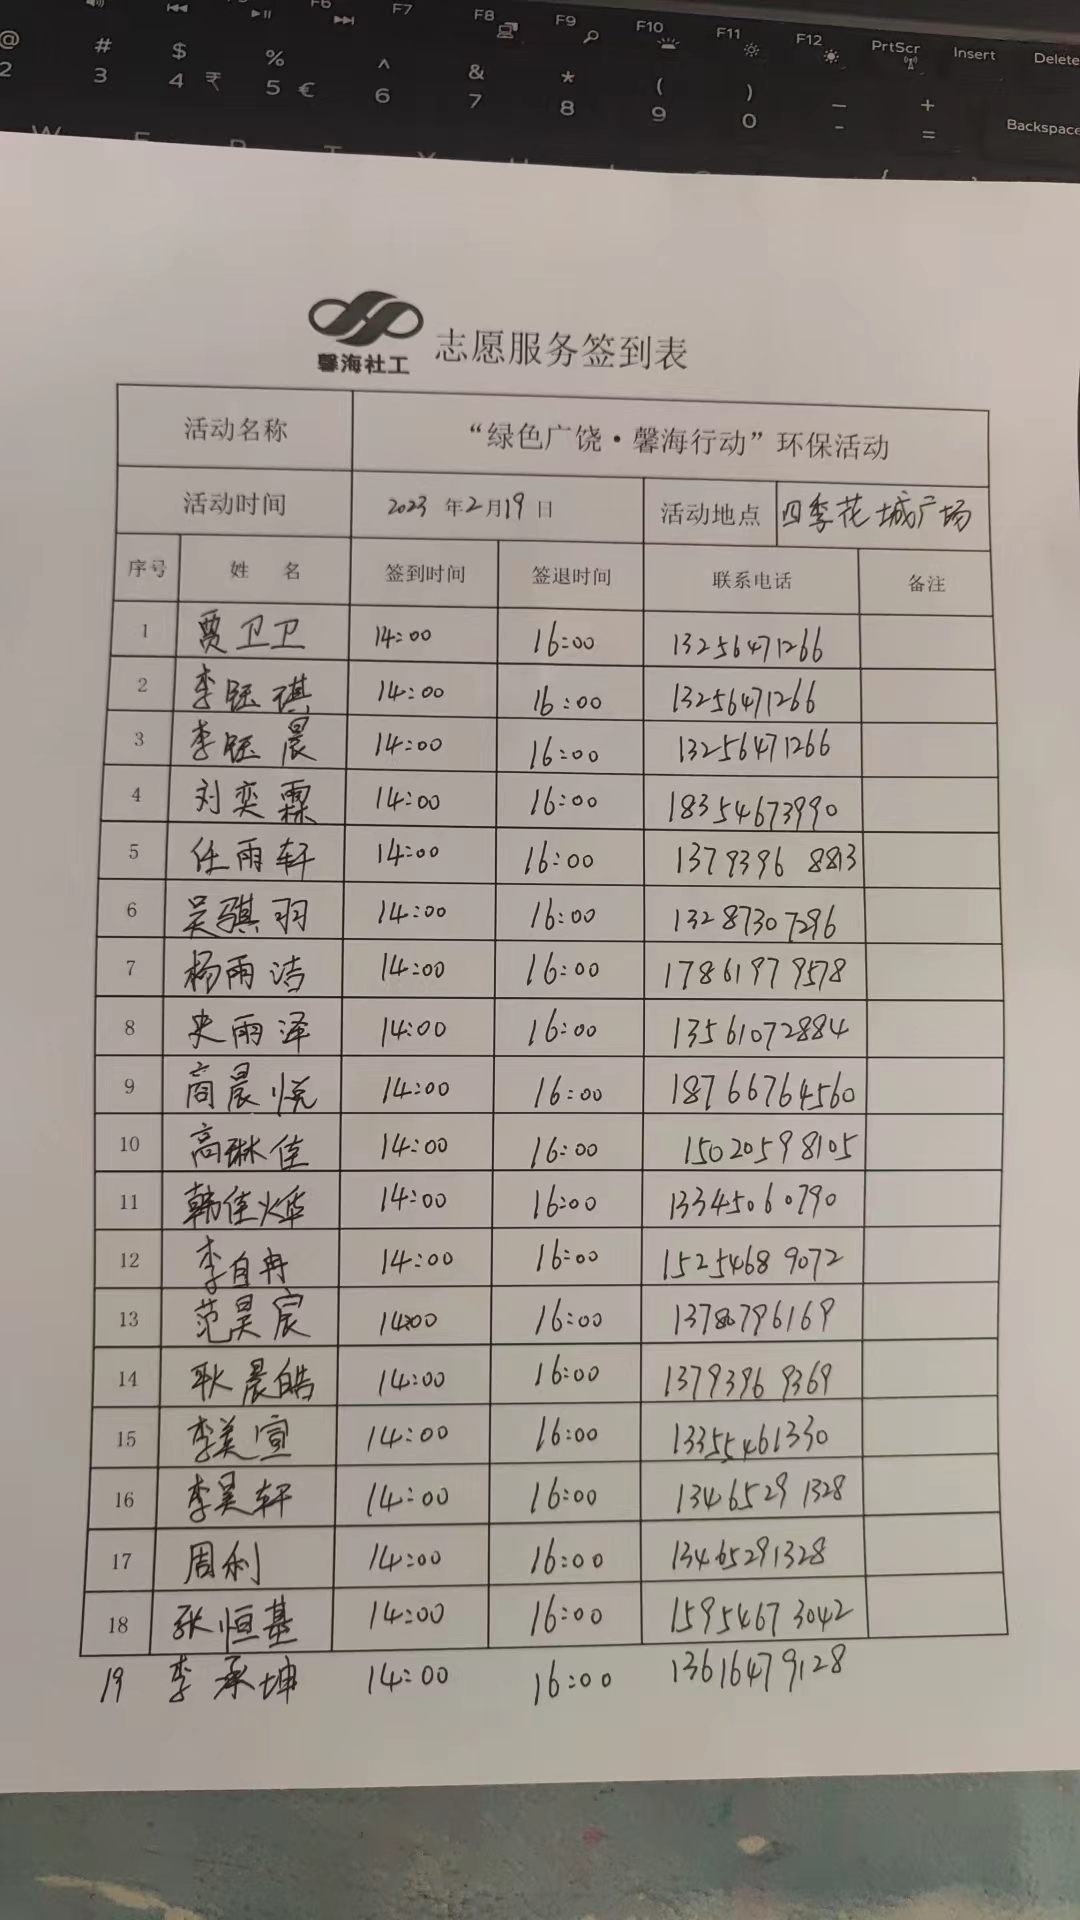 F7 F8 F9 F10 F11 F12 PrtScr Insert Delete
@ # $ % ^ & * ( ) — +
2 3 4 ₹ 5 € 6 7 8 9 0 - =
Backspace
馨海社工
志愿服务签到表
活动名称 “绿色广饶·馨海行动”环保活动
活动时间 2023 年2月19日 活动地点 四季花城广场
序号 姓 名 签到时间 签退时间 联系电话 备注
1 贾卫卫 14:00 16:00 13256471266
2 李钰琪 14:00 16:00 13256471266
3 李钰晨 14:00 16:00 13256471266
4 刘奕霖 14:00 16:00 18354673990
5 任雨轩 14:00 16:00 1379396 8813
6 吴骐羽 14:00 16:00 13287307296
7 杨雨洁 14:00 16:00 17861979578
8 史雨泽 14:00 16:00 13561072884
9 商晨悦 14:00 16:00 18766764560
10 高琳佳 14:00 16:00 15020598105
11 韩佳烨 14:00 16:00 13345060790
12 李自冉 14:00 16:00 15254689072
13 范昊宸 14:00 16:00 13780796169
14 耿晨皓 14:00 16:00 1379396 9369
15 李美宣 14:00 16:00 13355461330
16 李昊轩 14:00 16:00 13465291328
17 周利 14:00 16:00 13465291328
18 张恒基 14:00 16:00 15954673042
19 李承坤 14:00 16:00 13616479128